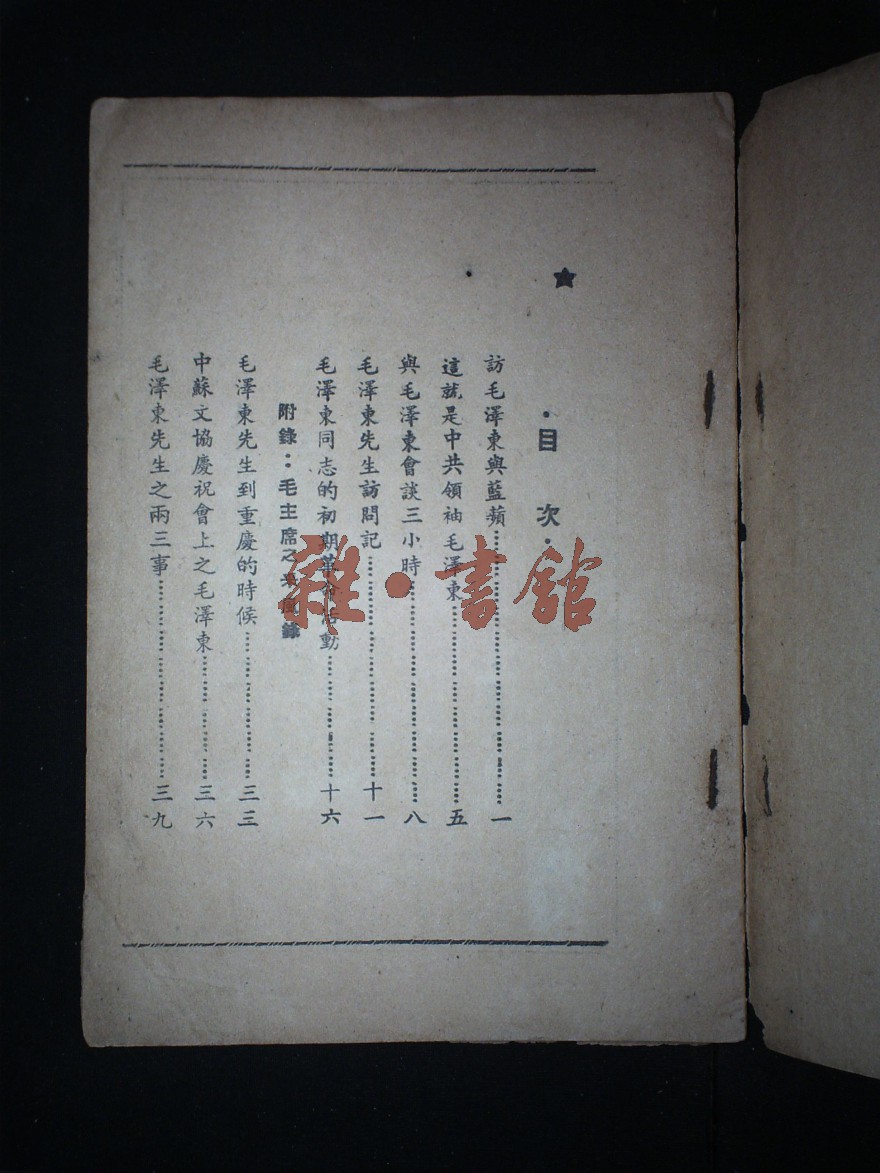 ·目 次·
訪毛澤東與藍蘋 一
這就是中共領袖毛澤東 五
與毛澤東會談三小時 八
毛澤東先生訪問記 十一
毛澤東同志的初期革命活動 十六
附錄：毛主席之 錄
毛澤東先生到重慶的時候 三三
中蘇文協慶祝會上之毛澤東 三六
毛澤東先生之兩三事 三九
雜·書館